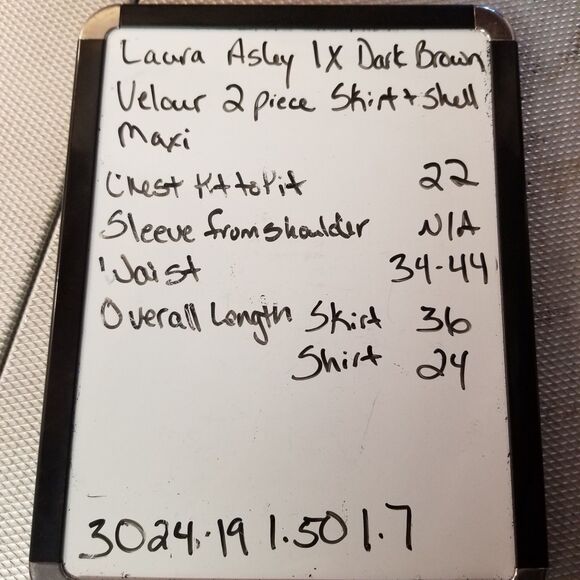 Laura Asley 1X Dark Brown
Velour 2 piece Skirt + Shell
Maxi
Chest Pit to Pit 22
Sleeve from shoulder N/A
Waist 34-44
Overall Length Skirt 36
Shirt 24
3024.19 1.50 1.7